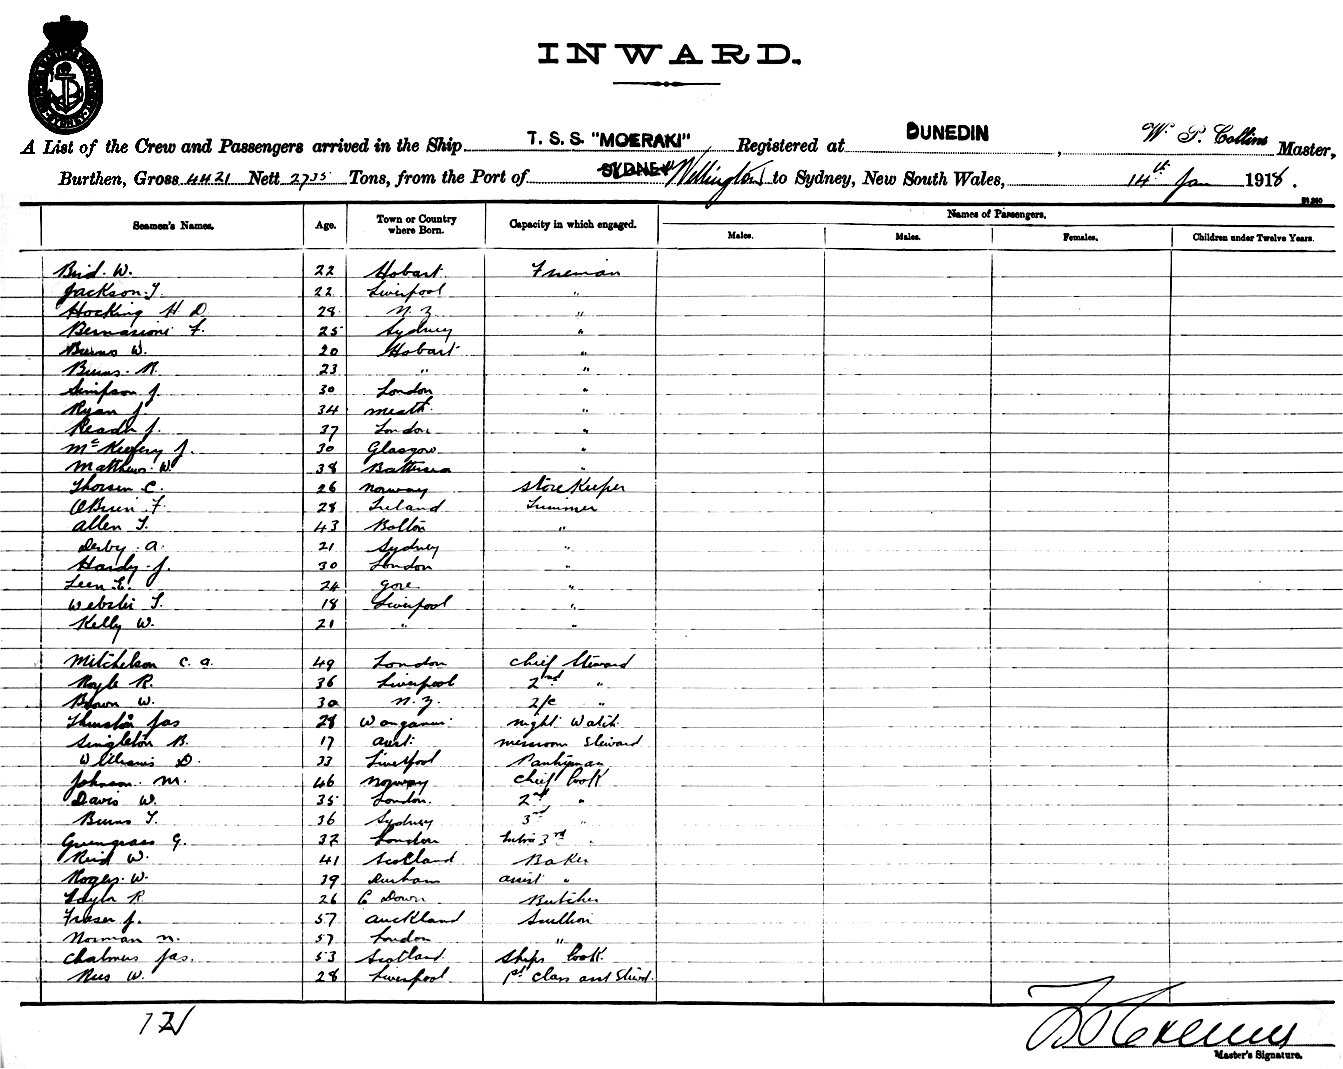 INWARD.
A List of the Crew and Passengers arrived in the Ship T.S.S. "MOERAKI", Registered at DUNEDIN, W. P. Collins Master,
Burthen, Gross 4421 Nett 2735 Tons, from the Port of SYDNEY Wellington to Sydney, New South Wales, 14th Jan 1918.
Names of Passengers.
Seamen's Names. Age. Town or Country where Born. Capacity in which engaged. Males. Males. Females. Children under Twelve Years.
Bird. W. 22 Hobart Fireman
Jackson. T. 22 Liverpool "
Hocking H D 28 N.Z "
F. 25 Sydney "
Burns W. 20 Hobart "
Burns. R. 23 " "
Simpson J. 30 London "
Ryan J 34 Meath "
J. 37 London "
McKeefery J. 30 Glasgow "
Matthews. W. 38 Battersea "
Thorsen C. 26 Norway StoreKeeper
O'Brien F. 28 Ireland Trimmer
Allen T. 43 Bolton "
Derby. A. 21 Sydney "
Hardy. J. 30 London "
Leen 24 Gore "
Webster T. 18 Liverpool "
Kelly W. 21 " "
Mitchelson C. A. 49 London Chief Steward
Royle R. 36 Liverpool 2nd "
Brown W. 30 N.Z. 2/c "
Thurston Jas 28 Wanganui Night Watch
Singleton B. 17 Aust. Messroom Steward
Williams D. 33 Liverpool Pantryman
Johnson. M. 46 Norway Chief Cook
Davis W. 35 London. 2nd "
Burns T. 36 Sydney 3rd "
Greengrass G. 32 London Extra 3rd "
Reid W. 41 Scotland Baker
Rogers. W. 39 Durham Assist "
Taylor R 26 C Down Butcher
Fraser J. 57 Auckland Scullion
Norman N. 57 London "
Chalmers Jas. 53 Scotland Ships Cook
Rees W. 28 Liverpool 1st Class Asst Stewd.
Master's Signature.